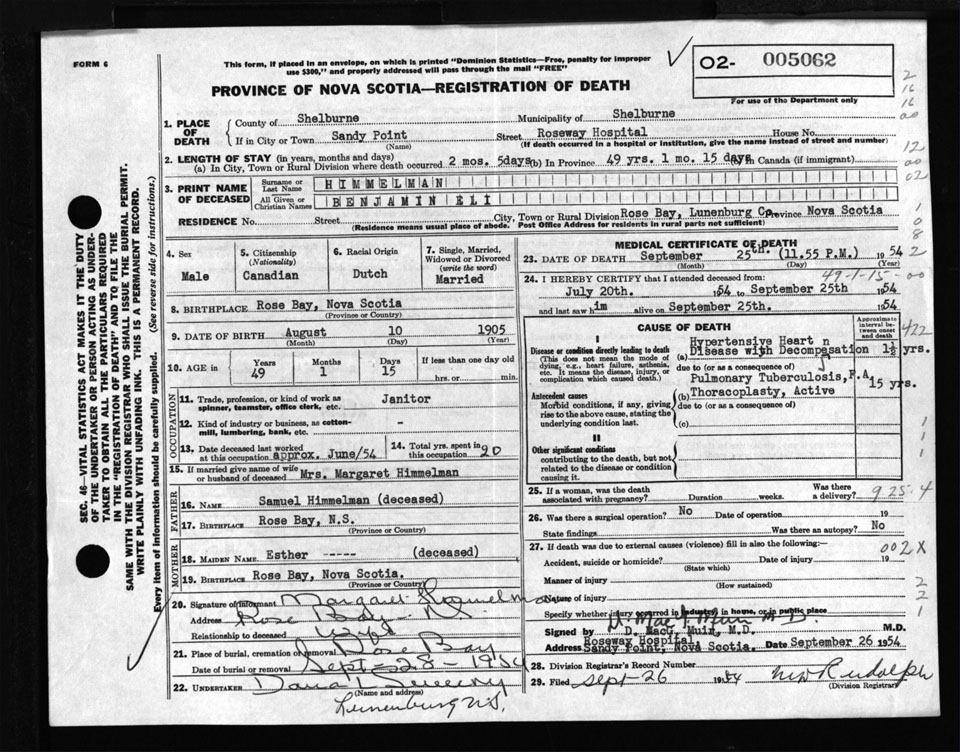 FORM 6
This form, if placed in an envelope, on which is printed "Dominion Statistics—Free, penalty for improper
use $300," and properly addressed will pass through the mail "FREE"
O2- 005062
For use of the Department only
PROVINCE OF NOVA SCOTIA—REGISTRATION OF DEATH
1. PLACE OF DEATH
County of Shelburne Municipality of Shelburne
If in City or Town Sandy Point Street Roseway Hospital House No.
(Name) (If death occurred in a hospital or institution, give the name instead of street and number)
2. LENGTH OF STAY (in years, months and days)
(a) In City, Town or Rural Division where death occurred 2 mos. 5days (b) In Province 49 yrs. 1 mo. 15 days (c) In Canada (if immigrant)
3. PRINT NAME OF DECEASED
Surname or Last Name HIMMELMAN
All Given or Christian Names BENJAMIN ELI
RESIDENCE No. Street City, Town or Rural Division Rose Bay, Lunenburg Co. Province Nova Scotia
(Residence means usual place of abode. Post Office Address for residents in rural parts not sufficient)
4. Sex
Male
5. Citizenship
(Nationality)
Canadian
6. Racial Origin
Dutch
7. Single, Married,
Widowed or Divorced
(write the word)
Married
8. BIRTHPLACE Rose Bay, Nova Scotia
(Province or Country)
9. DATE OF BIRTH August 10 1905
(Month) (Day) (Year)
10. AGE in Years Months Days If less than one day old
49 1 15 hrs. or min.
OCCUPATION
11. Trade, profession, or kind of work as
spinner, teamster, office clerk, etc. Janitor
12. Kind of industry or business, as cotton-
mill, lumbering, bank, etc. -
13. Date deceased last worked
at this occupation approx. June/54
14. Total yrs. spent in
this occupation 20
15. If married give name of wife
or husband of deceased Mrs. Margaret Himmelman
FATHER
16. NAME Samuel Himmelman (deceased)
17. BIRTHPLACE Rose Bay, N.S.
(Province or Country)
MOTHER
18. MAIDEN NAME. Esther ----- (deceased)
19. BIRTHPLACE Rose Bay, Nova Scotia.
(Province or Country)
20. Signature of informant Margaret Himmelman
Address Rose Bay N.S.
Relationship to deceased Wife
21. Place of burial, cremation or removal Rose Bay
Date of burial or removal Sept-28-1954
22. UNDERTAKER Dana Sweeny
(Name and address)
Lunenburg N.S.
MEDICAL CERTIFICATE OF DEATH
23. DATE OF DEATH September 25th. (11.55 P.M.) 1954
(Month) (Day) (Year)
49-1-15
24. I HEREBY CERTIFY that I attended deceased from:
July 20th. 1954 to September 25th 1954
and last saw him alive on September 25th. 1954
CAUSE OF DEATH
Approximate
interval be-
tween onset
and death
I
Disease or condition directly leading to death
(This does not mean the mode of
dying, e.g., heart failure, asthenia,
etc. It means the disease, injury, or
complication which caused death.)
(a) Hypertensive Heart
Disease with Decompensation 1½ yrs.
422
due to (or as a consequence of)
Pulmonary Tuberculosis, F.A. 15 yrs.
Antecedent causes
Morbid conditions, if any, giving
rise to the above cause, stating the
underlying condition last.
(b) Thoracoplasty, Active
due to (or as a consequence of)
(c)
II
Other significant conditions
contributing to the death, but not
related to the disease or condition
causing it.
25. If a woman, was the death
associated with pregnancy? Duration weeks. Was there
a delivery?
9-25-4
26. Was there a surgical operation? No Date of operation 19
State findings Was there an autopsy? No
27. If death was due to external causes (violence) fill in also the following:—
002X
Accident, suicide or homicide? Date of injury 19
(State which)
Manner of injury
(How sustained)
Nature of injury
Specify whether injury occurred in industry, in home, or in public place
Signed by D. MacG. Muir, M.D. M.D.
Address Roseway Hospital
Sandy Point, Nova Scotia. Date September 26 1954
28. Division Registrar's Record Number
29. Filed Sept-26 1954 MW Rudolph
(Division Registrar)
SEC. 46—VITAL STATISTICS ACT MAKES IT THE DUTY
OF THE UNDERTAKER OR PERSON ACTING AS UNDER-
TAKER TO OBTAIN ALL THE PARTICULARS REQUIRED
IN THE "REGISTRATION OF DEATH" AND TO FILE THE
SAME WITH THE DIVISION REGISTRAR WHO SHALL ISSUE THE BURIAL PERMIT.
WRITE PLAINLY WITH UNFADING INK. THIS IS A PERMANENT RECORD.
Every item of information should be carefully supplied. (See reverse side for instructions.)